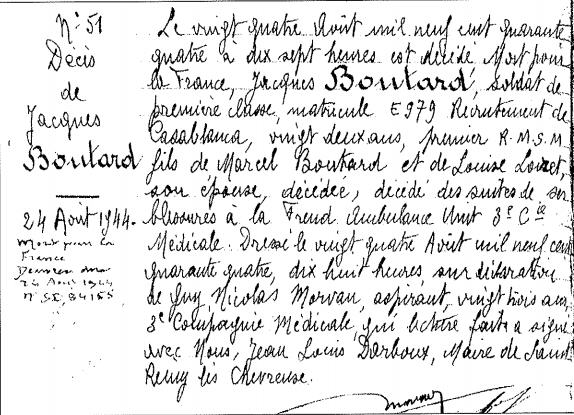 N° 51
Décès
de
Jacques
Boutard
24 Août 1944.
Mort pour la
France
24 Août 1944
Le vingt quatre Août mil neuf cent quarante
quatre à dix sept heures est décédé Mort pour
la France, Jacques Boutard, soldat de
première classe, matricule E 979 Recrutement de
Casablanca, vingt deux ans, premier R.M.S.M
fils de Marcel Boutard et de Louise Loizet,
son épouse, décédée, décédé des suites de ses
blessures à la Freud Ambulance Unit 3e Cie
Médicale. Dressé le vingt quatre Août mil neuf cent
quarante quatre, dix huit heures sur déclaration
de Guy Nicolas Morvan, aspirant, vingt trois ans
3e Compagnie Médicale, qui lecture faite a signé
avec Nous, Jean Louis Darboux, Maire de Saint
Remy lès Chevreuse.